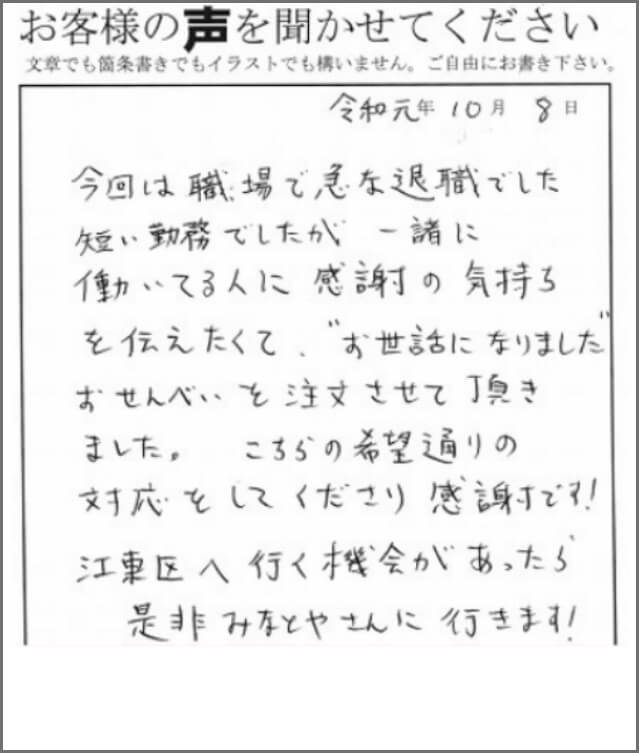 お客様の声を聞かせてください
文章でも箇条書きでもイラストでも構いません。ご自由にお書き下さい。
令和元年 10月 8日
今回は職場で急な退職でした
短い勤務でしたが 一諸に
働いてる人に 感謝の 気持ち
を伝えたくて、"お世話になりました"
おせんべいを注文させて頂き
ました。 こちらの希望通りの
対応をしてくださり 感謝です!
江東区へ行く機会があったら
是非みなとやさんに行きます!